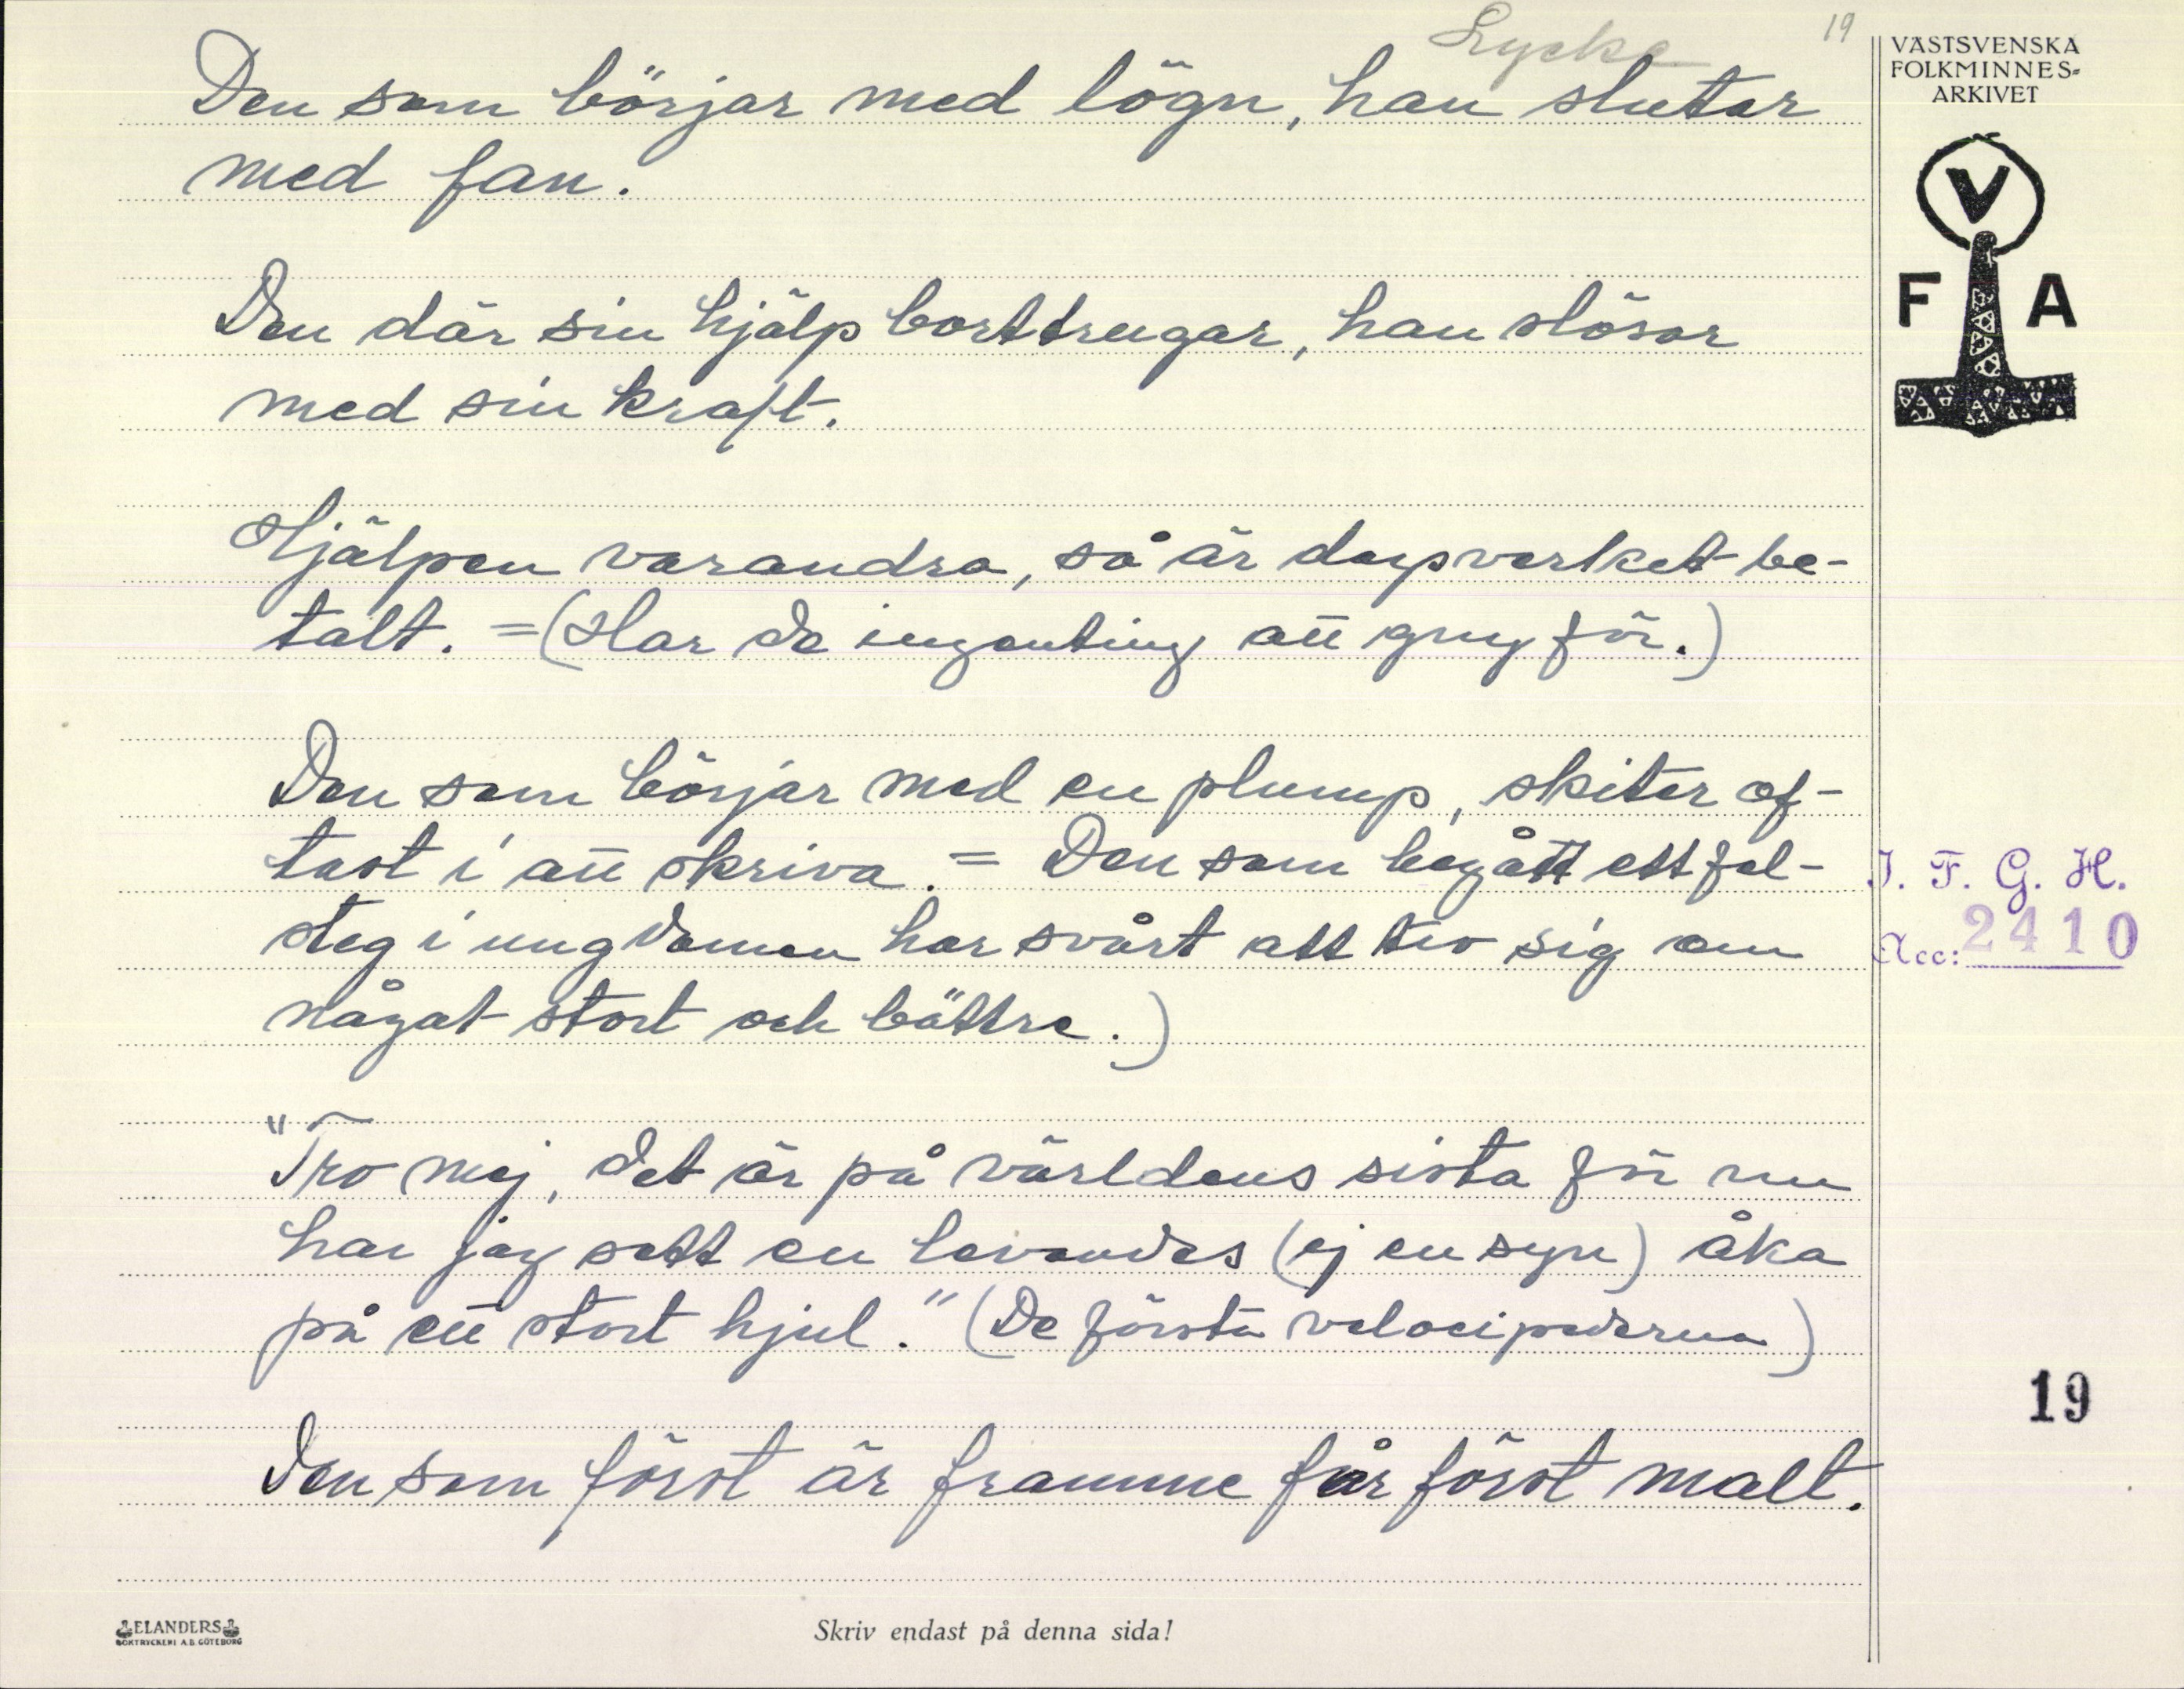 Lycke
19
VÄSTSVENSKA
FOLKMINNES-
ARKIVET
V
F A
Den som börjar med lögn, han slutar
med fan.
Den där sin hjälp borttrugar, han slösar
med sin kraft.
Hjälpen varandra, så är dagsverket be-
talt. =(Har de ingenting att gny för.)
Den som börjar med en plump, skiter of-
tast i att skriva. = Den som begått ett fel-
steg i ungdomen har svårt att tro sig om
något stort och bättre.)
"Tro mej, det är på världens sista för nu
har jag sett en levandes (ej en syn) åka
på ett stort hjul." (De första velocipederna)
Den som först är framme får först malt.
I. F. G. H.
Acc: 2410
19
ELANDERS
BOKTRYCKERI A.B. GÖTEBORG
Skriv endast på denna sida!